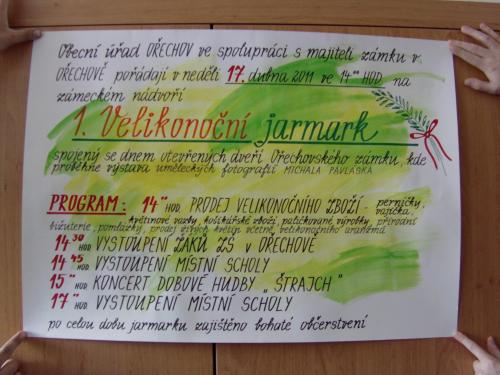 Obecní úřad OŘECHOV ve spolupráci s majiteli zámku v
OŘECHOVĚ pořádají v neděli 17. dubna 2011 ve 14 00 HOD na
zámeckém nádvoří
1. Velikonoční jarmark
spojený se dnem otevřených dveří Ořechovského zámku, kde
proběhne výstava uměleckých fotografií MICHALA PAVLÁSKA
PROGRAM: 14 00 HOD PRODEJ VELIKONOČNÍHO ZBOŽÍ - perníčky,
vajíčka,
květinové vazby, košíkářské zboží, paličkované výrobky, přírodní
bižuterie, pomlázky, prodej živých květin včetně velikonočního aranžmá
14 30 HOD VYSTOUPENÍ ŽÁKŮ ZŠ V OŘECHOVĚ
14 45 HOD VYSTOUPENÍ MÍSTNÍ SCHOLY
15 00 HOD KONCERT DOBOVÉ HUDBY „ŠTRAJCH"
17 00 HOD VYSTOUPENÍ MÍSTNÍ SCHOLY
po celou dobu jarmarku zajištěno bohaté občerstvení